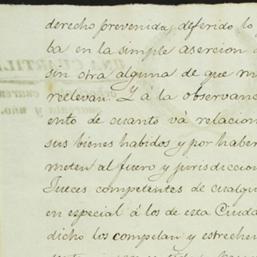 derecho prevenida, deferido lo
ba en la simple asercion
sin otra alguna de que
rrelevan. Y á la observanc
ento de cuanto vá relacion
sus bienes habidos y por haber
meten al fuero y jurisdiccion
Jueces competentes de cualqui
en especial á los de esta Ciuda
dicho los compelan y estreche